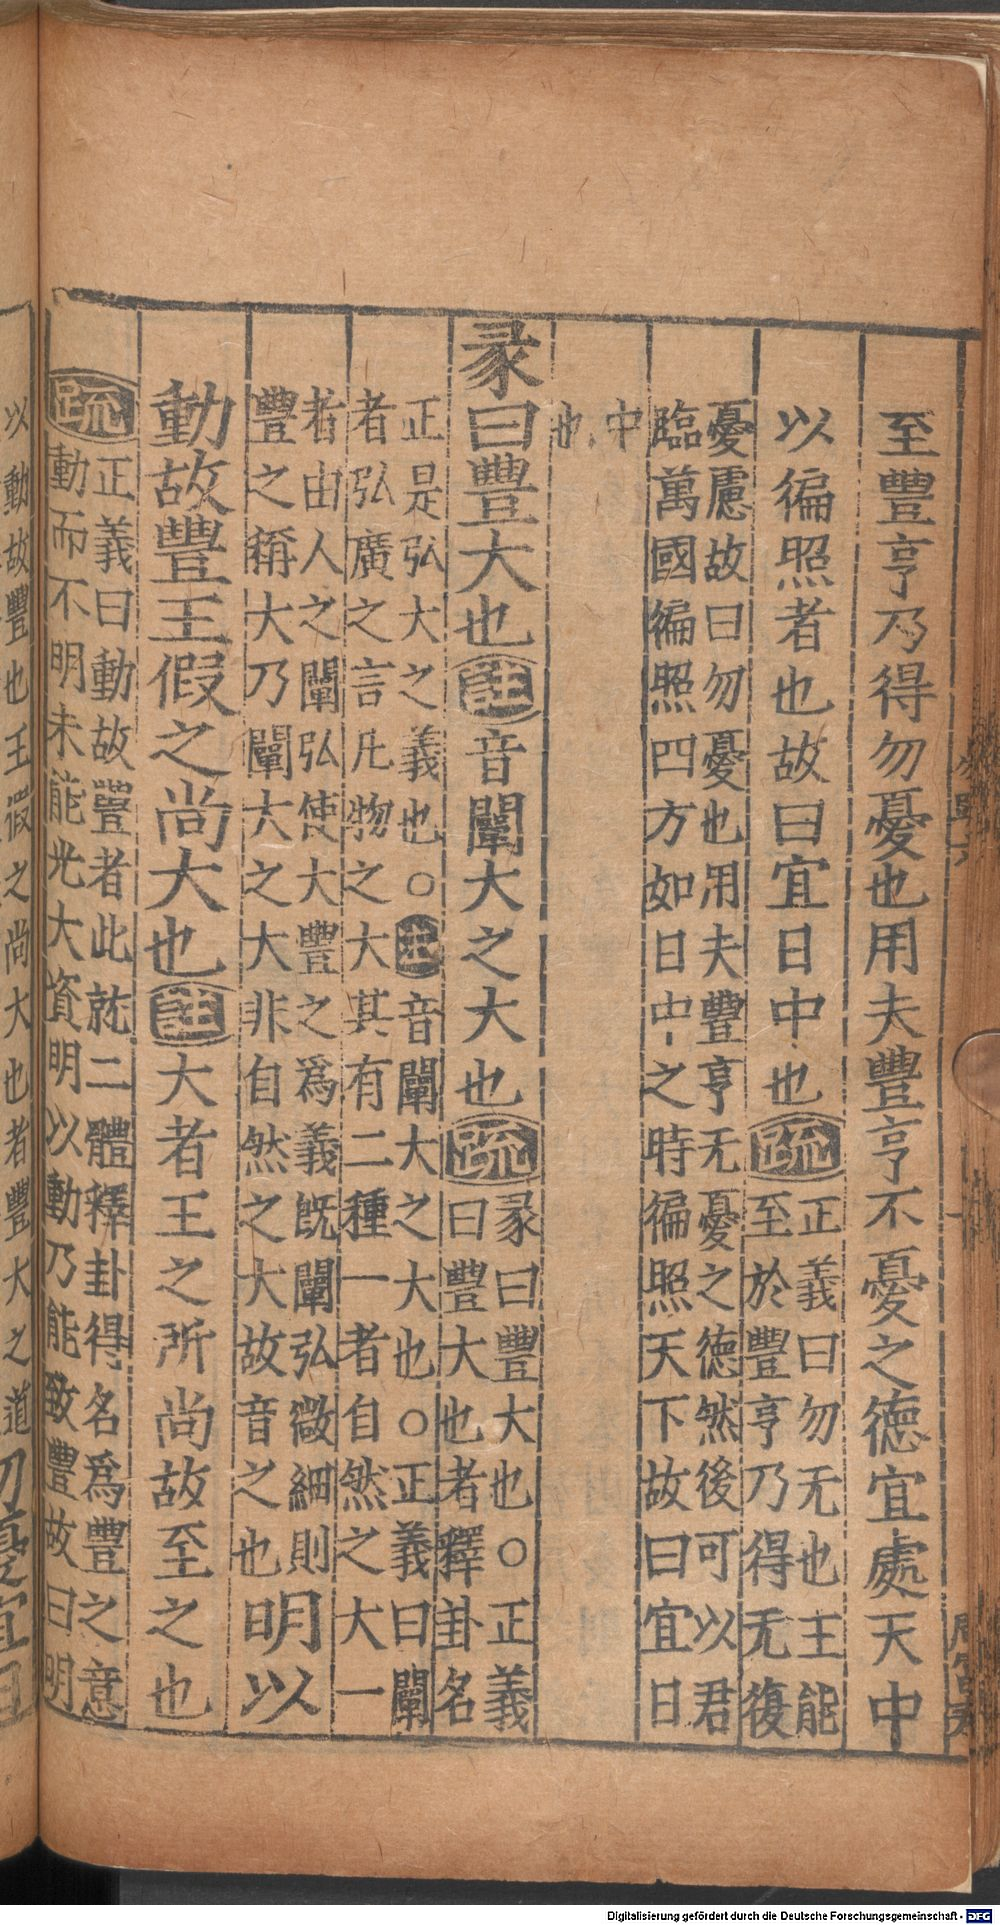 至豐亨乃得勿憂也用夫豐亨不憂之德宜處天中
以徧照者也故曰宜日中也疏
正義曰勿无也王能
至於豐亨乃得无復
憂慮故曰勿憂也用夫豐亨无憂之德然後可以君
臨萬國徧照四方如日中之時徧照天下故曰宜日
中
也
彖曰豐大也註音闡大之大也疏
彖曰豐大也○正義
曰豐大也者釋卦名
正是弘大之義也○註音闡大之大也○正義曰闡
者弘廣之言凡物之大其有二種一者自然之大一
者由人之闡弘使大豐之爲義旣闡弘微細則
豐之稱大乃闡大之大非自然之大故音之也
明以
動故豐王假之尚大也註大者王之所尚故至之也
疏
正義曰動故豐者此就二體釋卦得名爲豐之意
動而不明未能光大資明以動乃能致豐故曰明
以動故豐也王假之尚大也者豐大之道
勿憂宜日
Digitalisierung gefördert durch die Deutsche Forschungsgemeinschaft - DFG